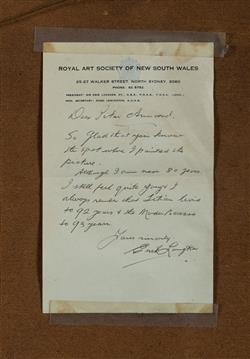 ROYAL ART SOCIETY OF NEW SOUTH WALES
25-27 WALKER STREET, NORTH SYDNEY, 2060
PHONE: 92 5752
PRESIDENT:
HON. SECRETARY:
Dear Peter
So glad that you know
the spot where I painted the
picture.
Although I am now 80 years
I still feel quite young & I
always remember that Titian lived
to 92 years & the Modern Picasso
to 92 years
Yours sincerely
Erik Langker